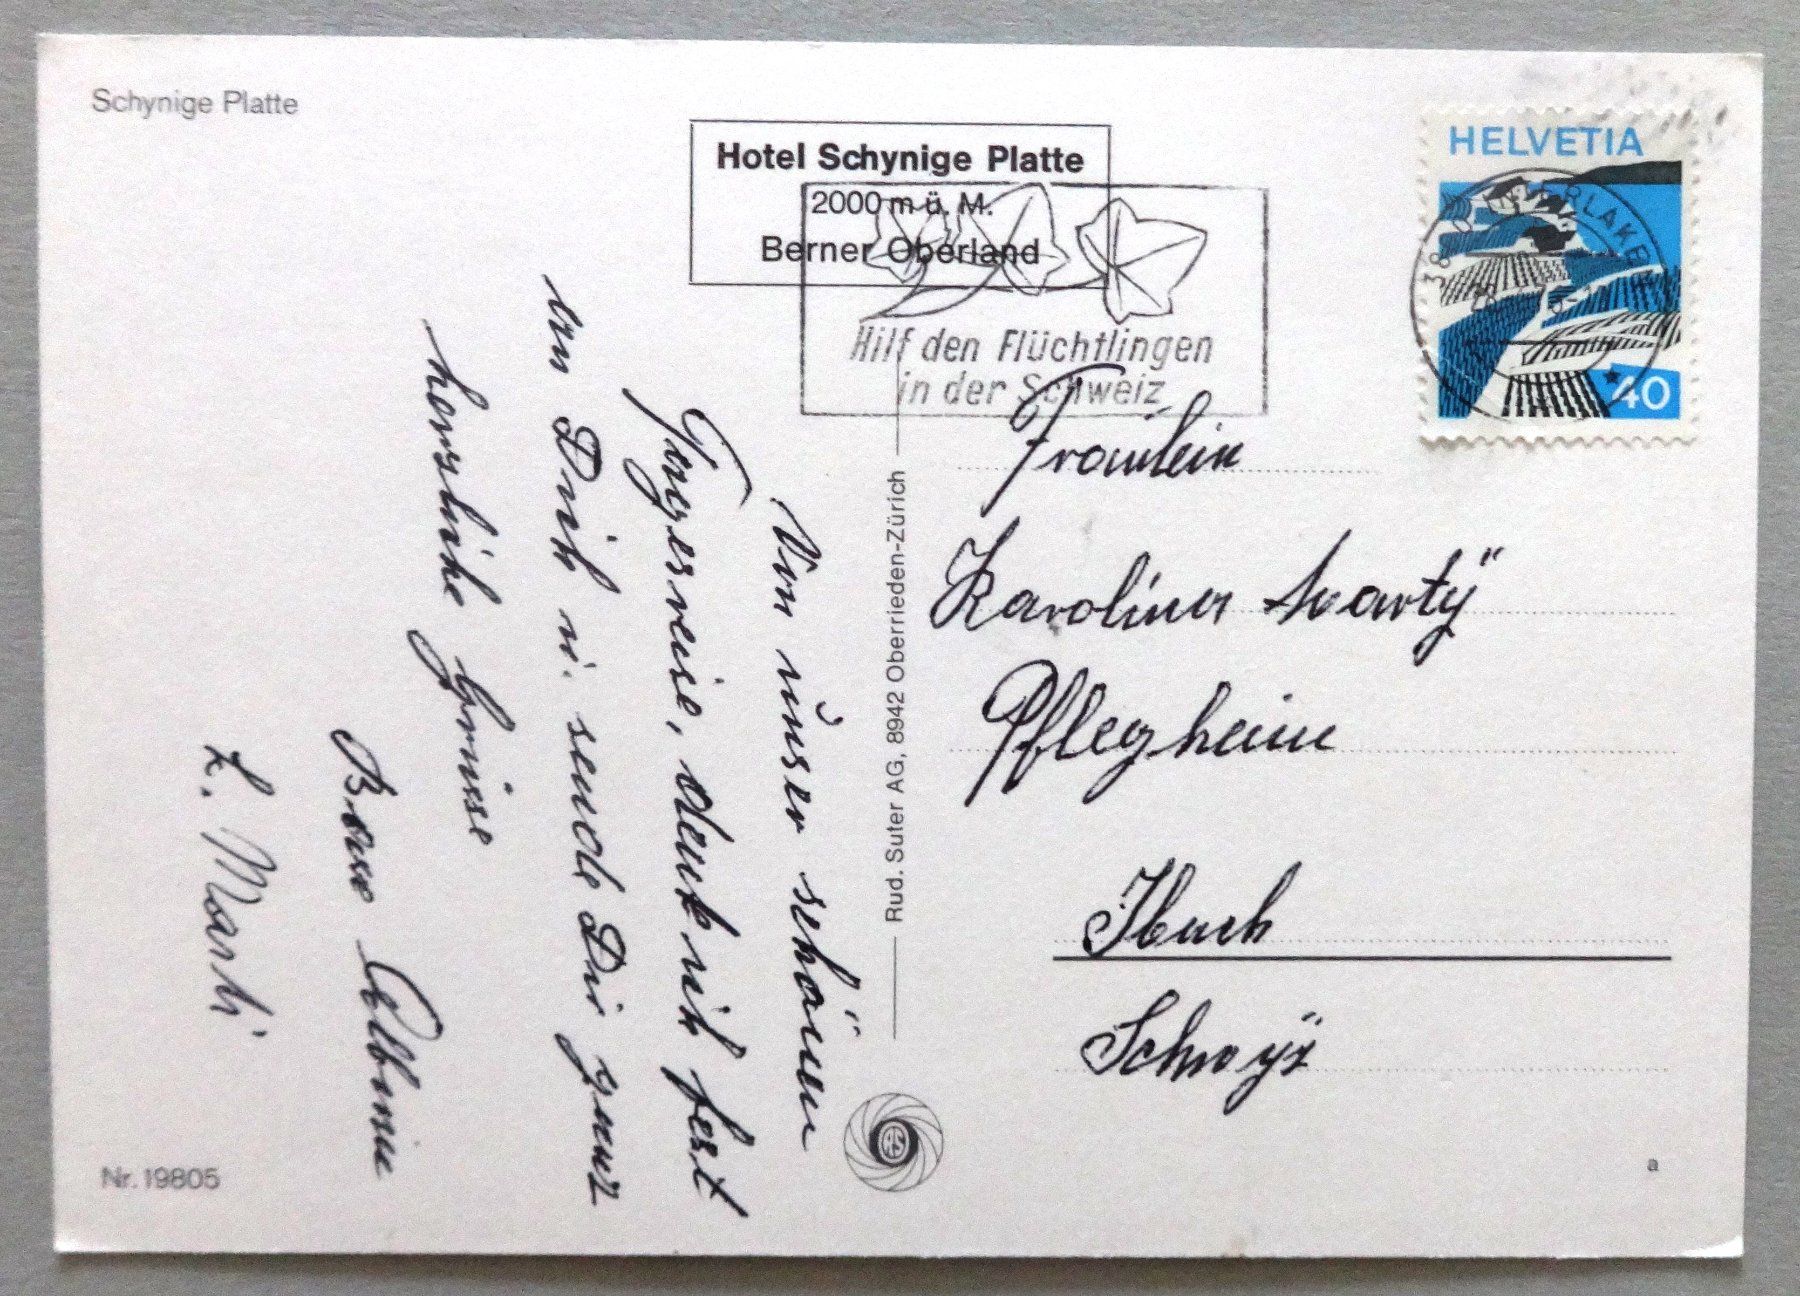 Schynige Platte
Hotel Schynige Platte
2000 m ü. M.
Berner Oberland
Hilf den Flüchtlingen
in der Schweiz
HELVETIA
40
3800 INTERLAKEN
Von unser schönen
Tagesreise, denk ich fest
an Dich u. sende Dir ganz
herzliche Grüsse
Base Albina
L. Marti
Rud. Suter AG, 8942 Oberrieden-Zürich
RS
Fräulein
Karolina Marty
Pflegheim
Ibach
Schwyz
Nr. 19805
a